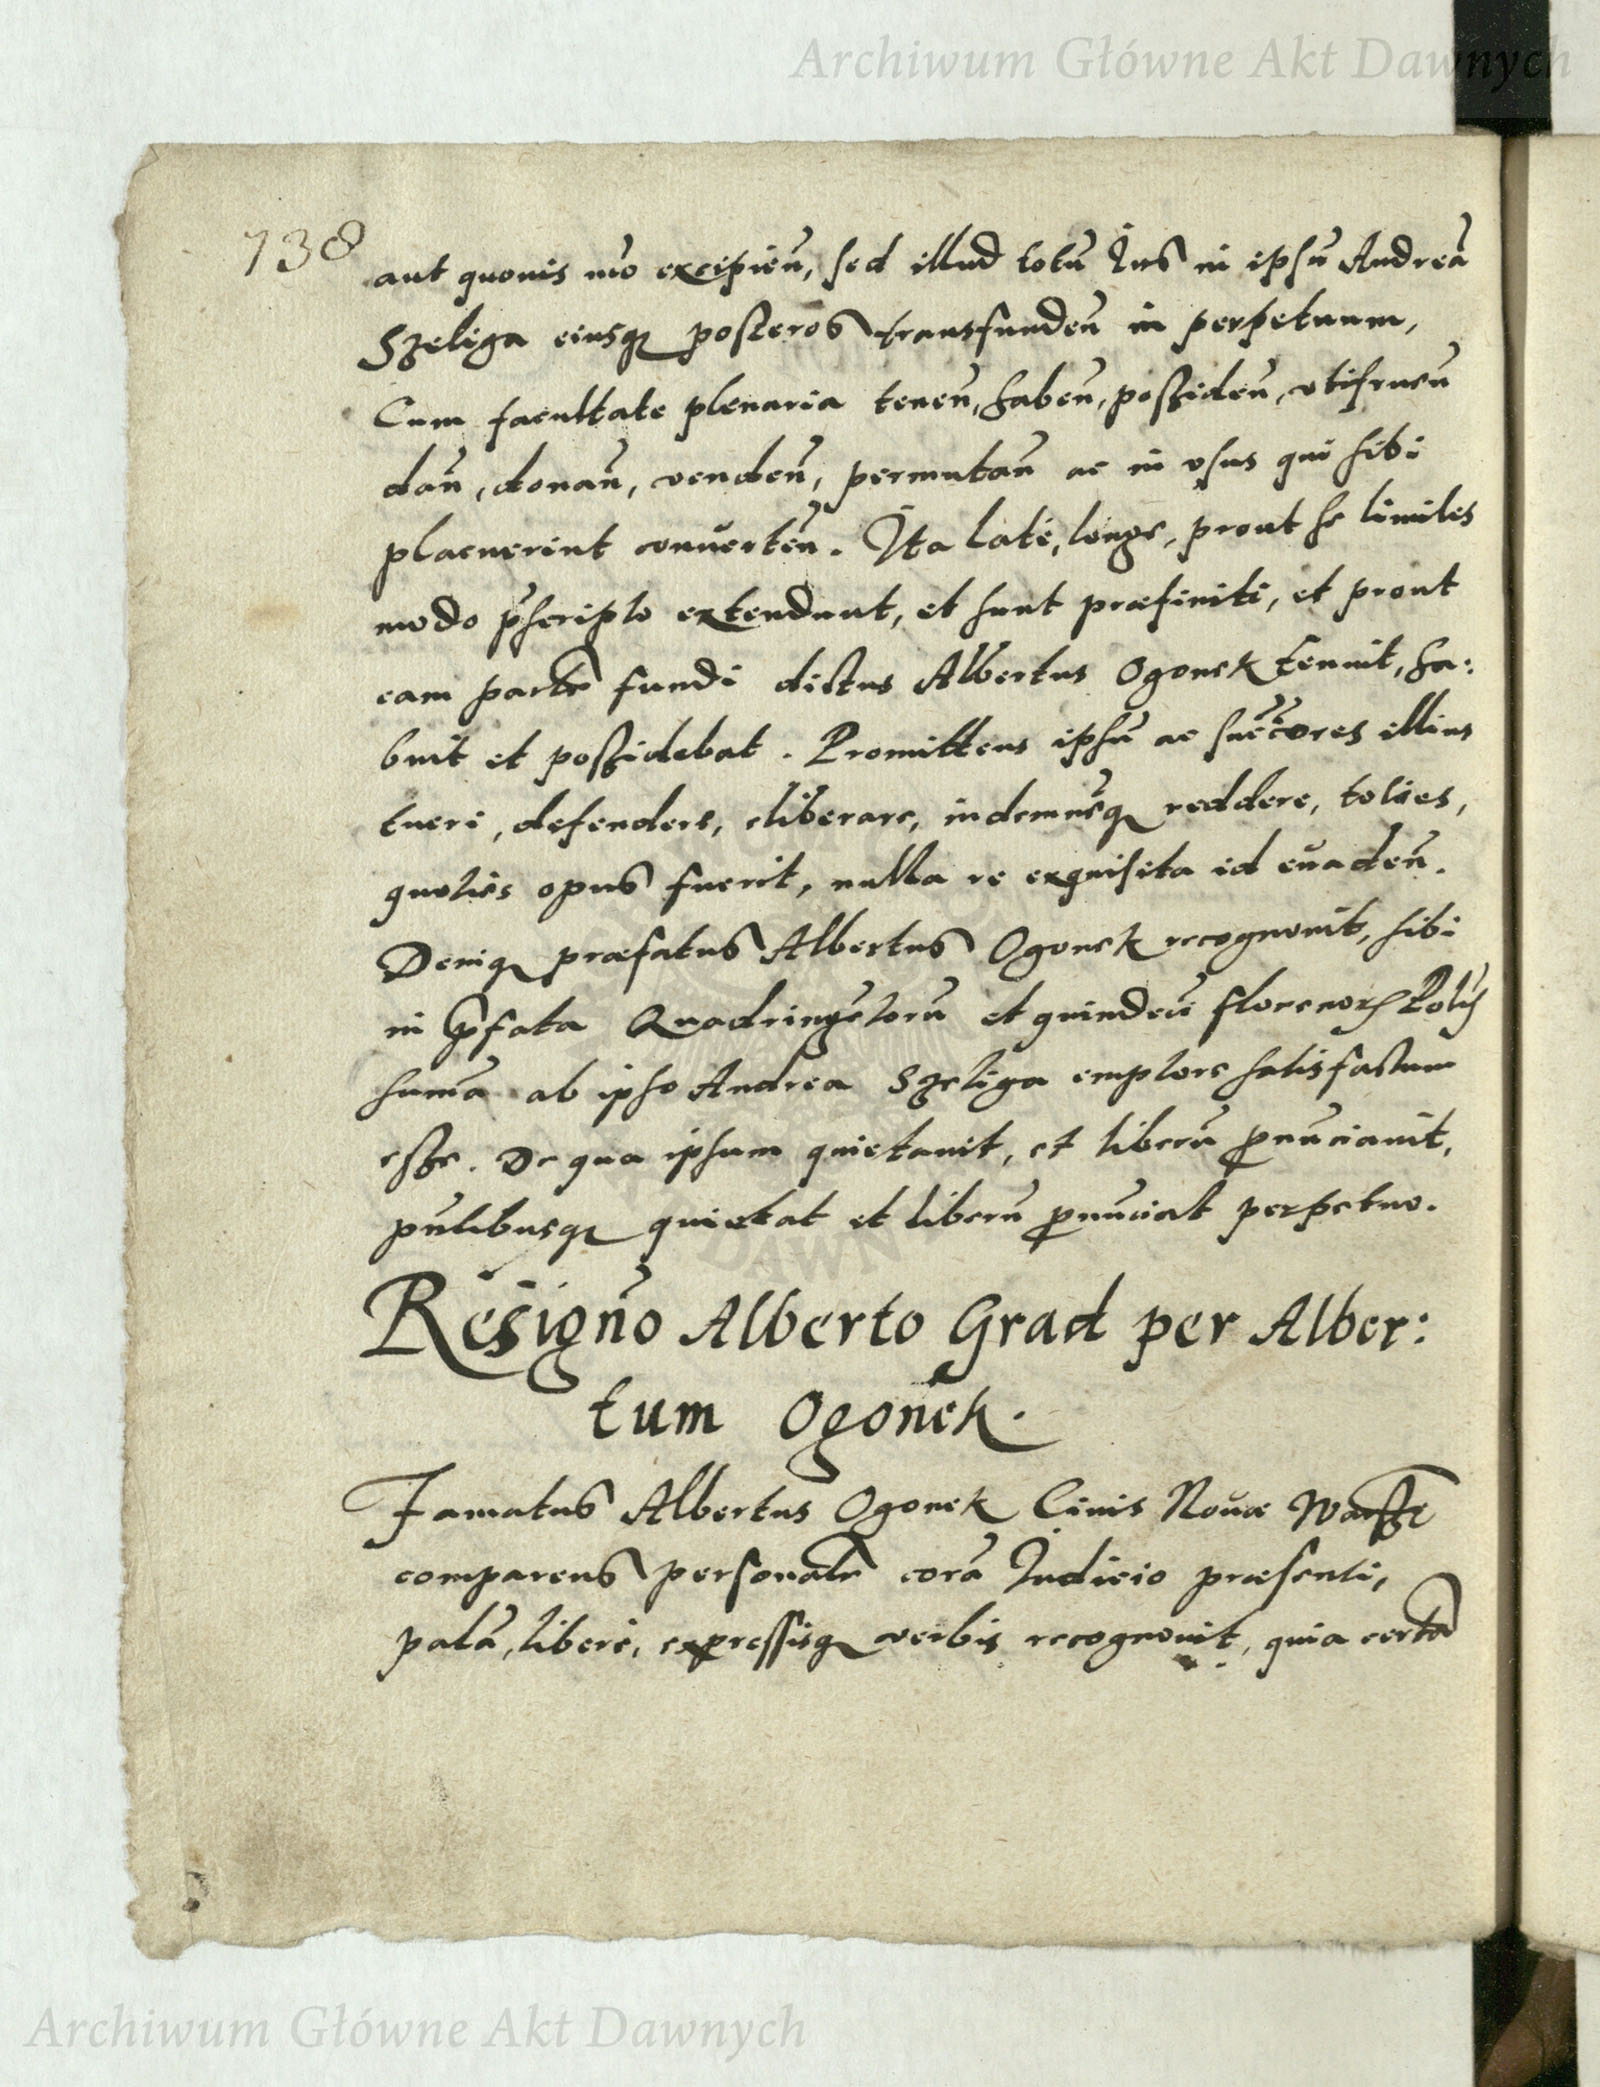 Archiwum Główne Akt Dawnych
738
aut quouis mo excipień, sed illud totū Ius in ipsū Andreā
Szeliga eiusq posteros transfundeń in perpetuum,
Cum facultate plenaria teneń, habeń, possideń, vtifrueń
dań, donań, vendeń, permutań ac in vsus qui sibi
placuerint conŭerteń. Ita laté, longe, prout se limites
modo pscripto extendunt, et sunt præfiniti, et prout
eam parte fundi dictus Albertus Ogonek tenuit, ha:
buit et possidebat. Promittens ipsū ac succores illius
tueri, defendere, eliberare, indemnesq reddere, toties,
quoties opus fuerit, nulla re exquisita id eŭadeń.
Deniq præfatus Albertus Ogonek recognouit, sibi
in pfata Quadringētorū et quindeci florenor Pol
sumā ab ipso Andrea Szeliga emptore satisfactum
esse. De qua ipsum quietauit, et liberū pnūciauit,
pntibusq quietat et liberū pnūciat perpetuo.
Resigńo Alberto Grad per Alber:
tum Ogonek.
Famatus Albertus Ogonek Ciuis Nouæ Warsz
comparens personalr corā Iudicio præsenti,
palā, liberé, expressisq verbis recognouit, quia certā
Archiwum Główne Akt Dawnych